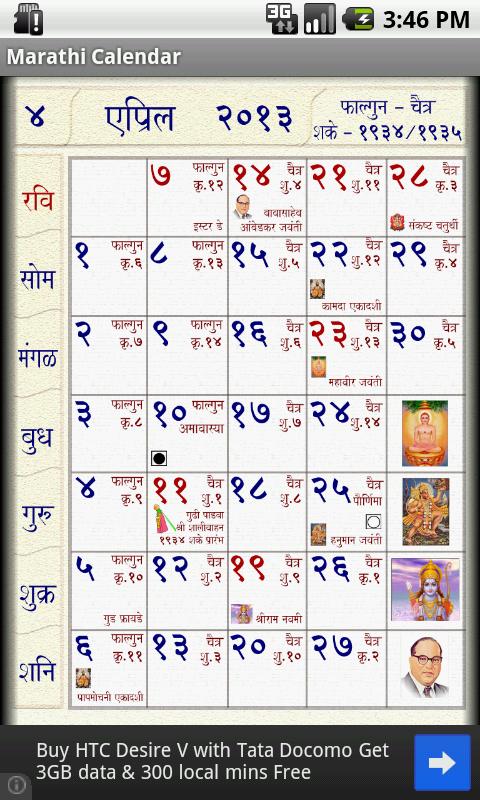 3G
3:46 PM
Marathi Calendar
४ एप्रिल २०१३
फाल्गुन - चैत्र
शके - १९३४/१९३५
रवि
७ फाल्गुन
कृ.१२
इस्टर डे
१४ चैत्र
शु.४
बाबासाहेब
आंबेडकर जयंती
२१ चैत्र
शु.११
२८ चैत्र
कृ.३
संकष्ट चतुर्थी
सोम
१ फाल्गुन
कृ.६
८ फाल्गुन
कृ.१३
१५ चैत्र
शु.५
२२ चैत्र
शु.१२
कामदा एकादशी
२९ चैत्र
कृ.४
मंगळ
२ फाल्गुन
कृ.७
९ फाल्गुन
कृ.१४
१६ चैत्र
शु.६
२३ चैत्र
शु.१३
महावीर जयंती
३० चैत्र
कृ.५
बुध
३ फाल्गुन
कृ.८
१० फाल्गुन
अमावास्या
१७ चैत्र
शु.७
२४ चैत्र
शु.१४
गुरु
४ फाल्गुन
कृ.९
११ चैत्र
शु.१
गुढी पाडवा
श्री शालीवाहन
१९३४ शके प्रारंभ
१८ चैत्र
शु.८
२५ चैत्र
पौर्णिमा
हनुमान जयंती
शुक्र
५ फाल्गुन
कृ.१०
गुड फ्रायडे
१२ चैत्र
शु.२
१९ चैत्र
शु.९
श्रीराम नवमी
२६ चैत्र
कृ.१
शनि
६ फाल्गुन
कृ.११
पापमोचनी एकादशी
१३ चैत्र
शु.३
२० चैत्र
शु.१०
२७ चैत्र
कृ.२
Buy HTC Desire V with Tata Docomo Get
3GB data & 300 local mins Free